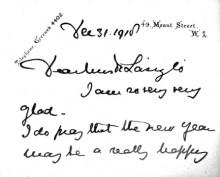 Telephone, Gerrard 4402.
Dec 31. 1918
49, Mount Street,
W. 1.
Dear Mrs de László
I am so very very
glad -
I do pray that the new year
may be a really happy